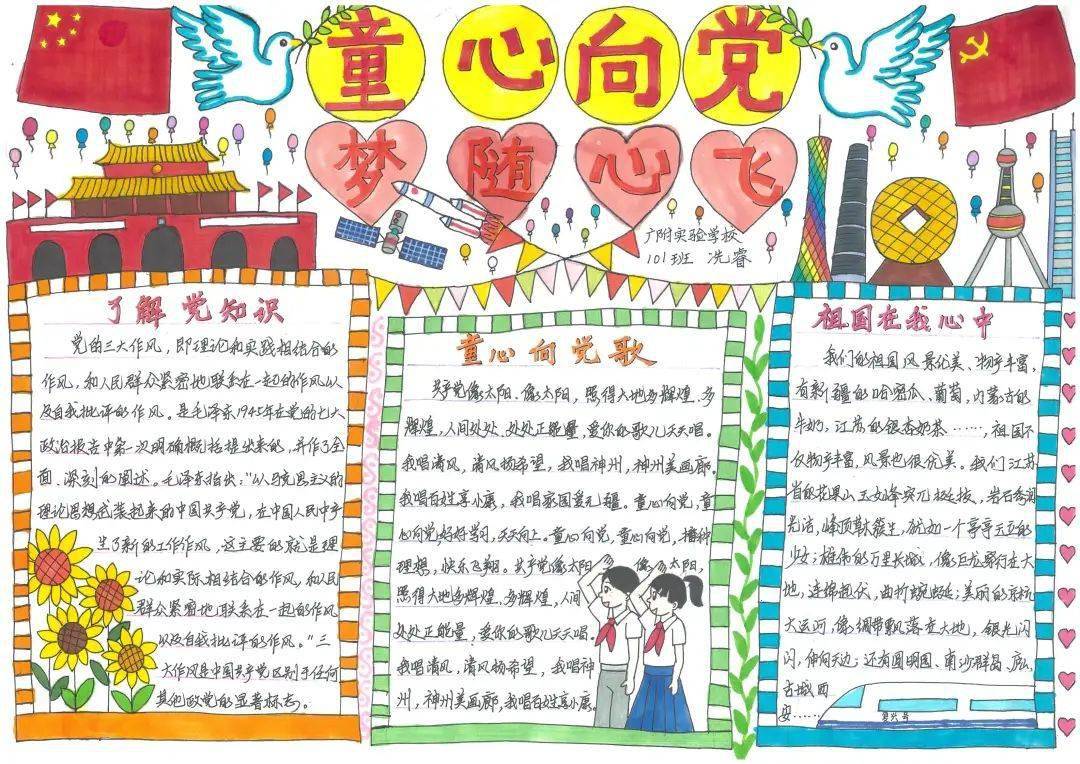 童心向党
梦随心飞
广附实验学校
101班 冼睿
了解党知识
党的三大作风，即理论和实践相结合的
作风，和人民群众紧密地联系在一起的作风以
及自我批评的作风。是毛泽东1945年在党的七大
政治报告中第一次明确概括提出来的，并作了全
面、深刻的阐述。毛泽东指出："以马克思主义的
理论思想武装起来的中国共产党，在中国人民中产
生了新的工作作风，这主要的就是理
论和实际相结合的作风，和人民
群众紧密地联系在一起的作风
以及自我批评的作风。"三
大作风是中国共产党区别于任何
其他政党的显著标志。
童心向党歌
共产党像太阳，像太阳，照得大地多辉煌，多
辉煌，人间处处，处处正能量，爱你的歌儿天天唱。
我唱清风，清风扬希望，我唱神州，神州美画廊。
我唱百姓享小康，我唱家国爱无疆。童心向党，童
心向党，好好学习，天天向上。童心向党，童心向党，播种
理想，快乐飞翔。共产党像太阳，像太阳，
照得大地多辉煌，多辉煌，人间
处处正能量，爱你的歌儿天天唱。
我唱清风，清风扬希望，我唱神
州，神州美画廊，我唱百姓享小康。
祖国在我心中
我们的祖国风景优美、物产丰富，
有新疆的哈密瓜、葡萄，内蒙古的
牛奶，江苏的银杏奶茶……，祖国不
仅物产丰富，风景也很优美。我们江苏
省的花果山玉女峰
光洁，峰顶
少女；雄伟的万里长城，像巨龙穿行在大
地，连绵起伏，曲折蜿蜒；美丽的京杭
大运河，像绸带飘落在大地，银光闪
闪，伸向天边；还有圆明园、南沙群岛、庐山、
古城西
安……
复兴号